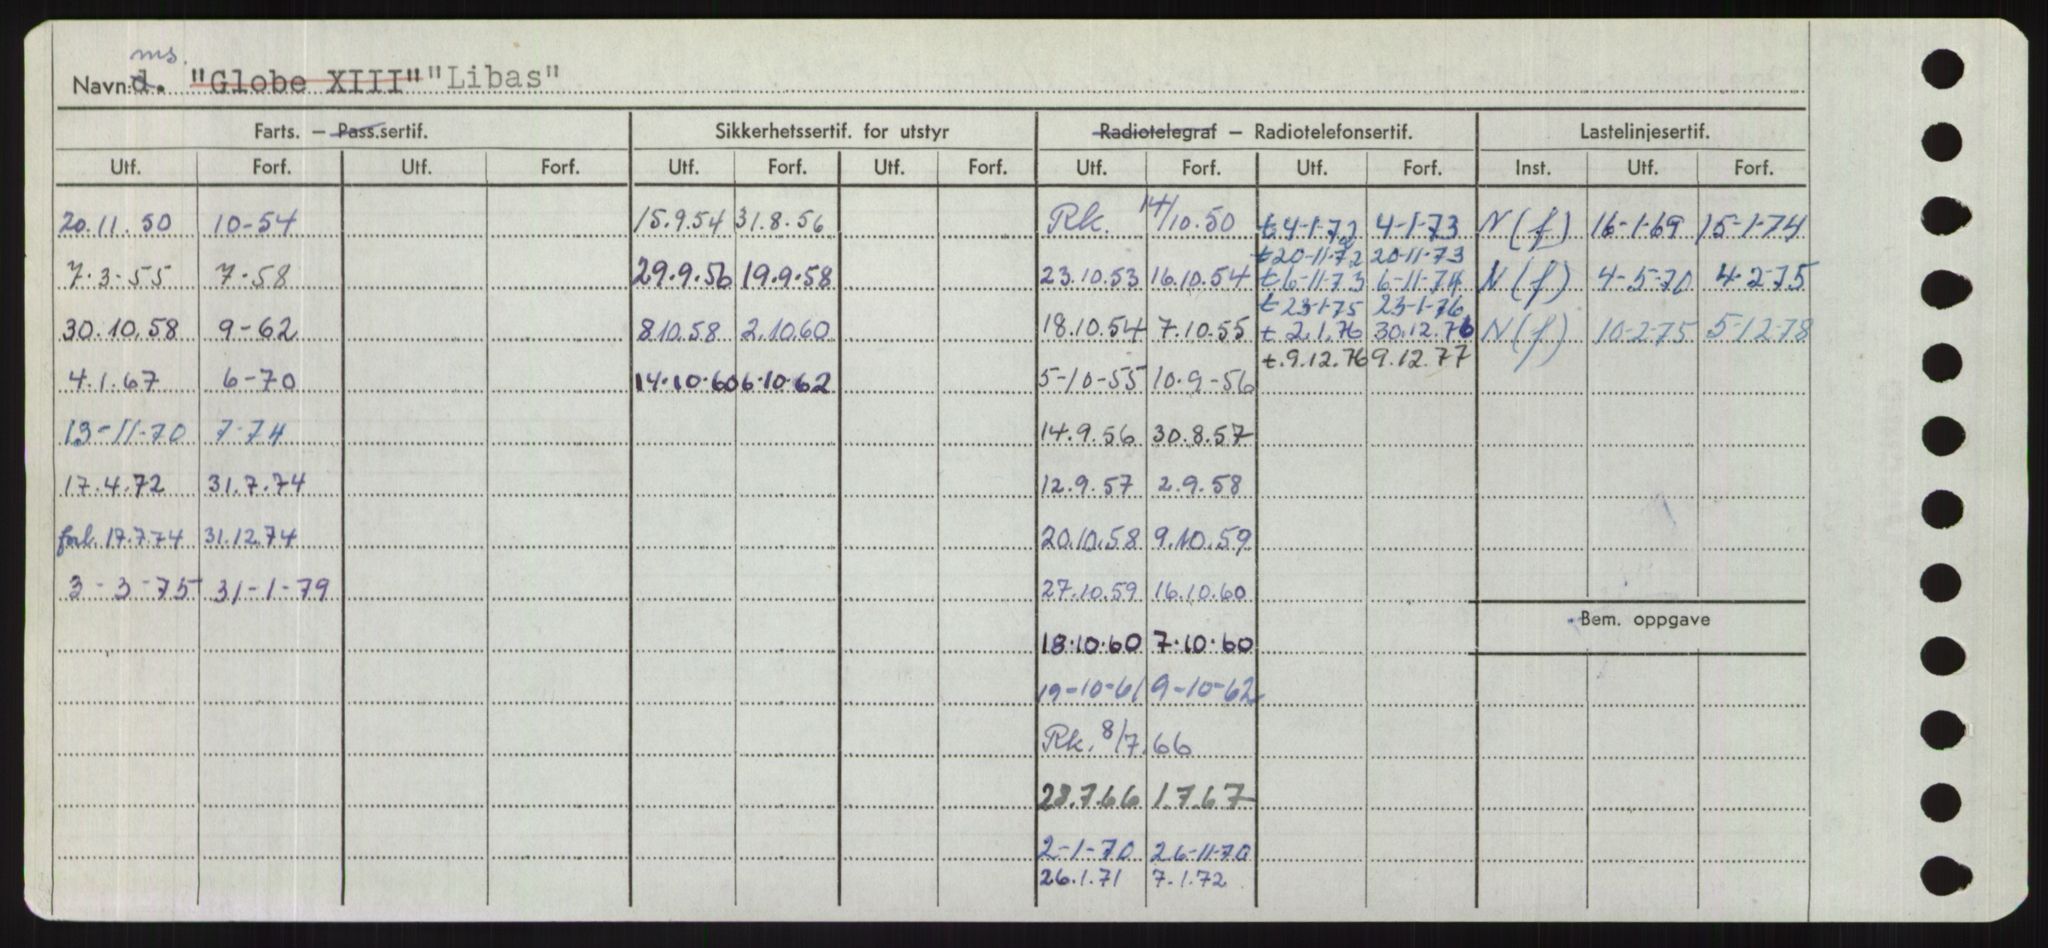 ms.
Navn: d. "Globe XIII" "Libas"
Farts. – Pass.sertif. Sikkerhetssertif. for utstyr Radiotelegraf – Radiotelefonsertif. Lastelinjesertif.
Utf. Forf. Utf. Forf. Utf. Forf. Utf. Forf. Utf. Forf. Utf. Forf. Inst. Utf. Forf.
20.11.50 10-54 15.9.54 31.8.56 Rk. 14/10.50 t 4-1-72 4-1-73 N(f) 16-1-69 15-1-74
t 20-11-72 20-11-73
7.3-55 7-58 29.9.56 19.9.58 23.10.53 16.10.54 t 6-11-73 6-11-74 N(f) 4-5-70 4-2-75
t 23-1-75 23-1-76
30.10.58 9-62 8.10.58 2.10.60 18.10.54 7.10.55 t 2.1.76 30.12.76 N(f) 10-2-75 5-12-78
t.9.12.76 9.12.77
4.1.67 6-70 14.10.60 6.10.62 5-10-55 10.9-56
13-11-70 7-74 14.9.56 30.8.57
17.4.72 31.7.74 12.9.57 2.9.58
forl. 17.7.74 31.12.74 20.10.58 9.10.59
3-3-75 31-1-79 27.10.59 16.10.60
Bem. oppgave
18.10.60 7.10.60
19-10-61 9-10-62
Rk. 8/7.66
28.7.66 1.7.67
2-1-70 26-11-70
26.1.71 7.1.72